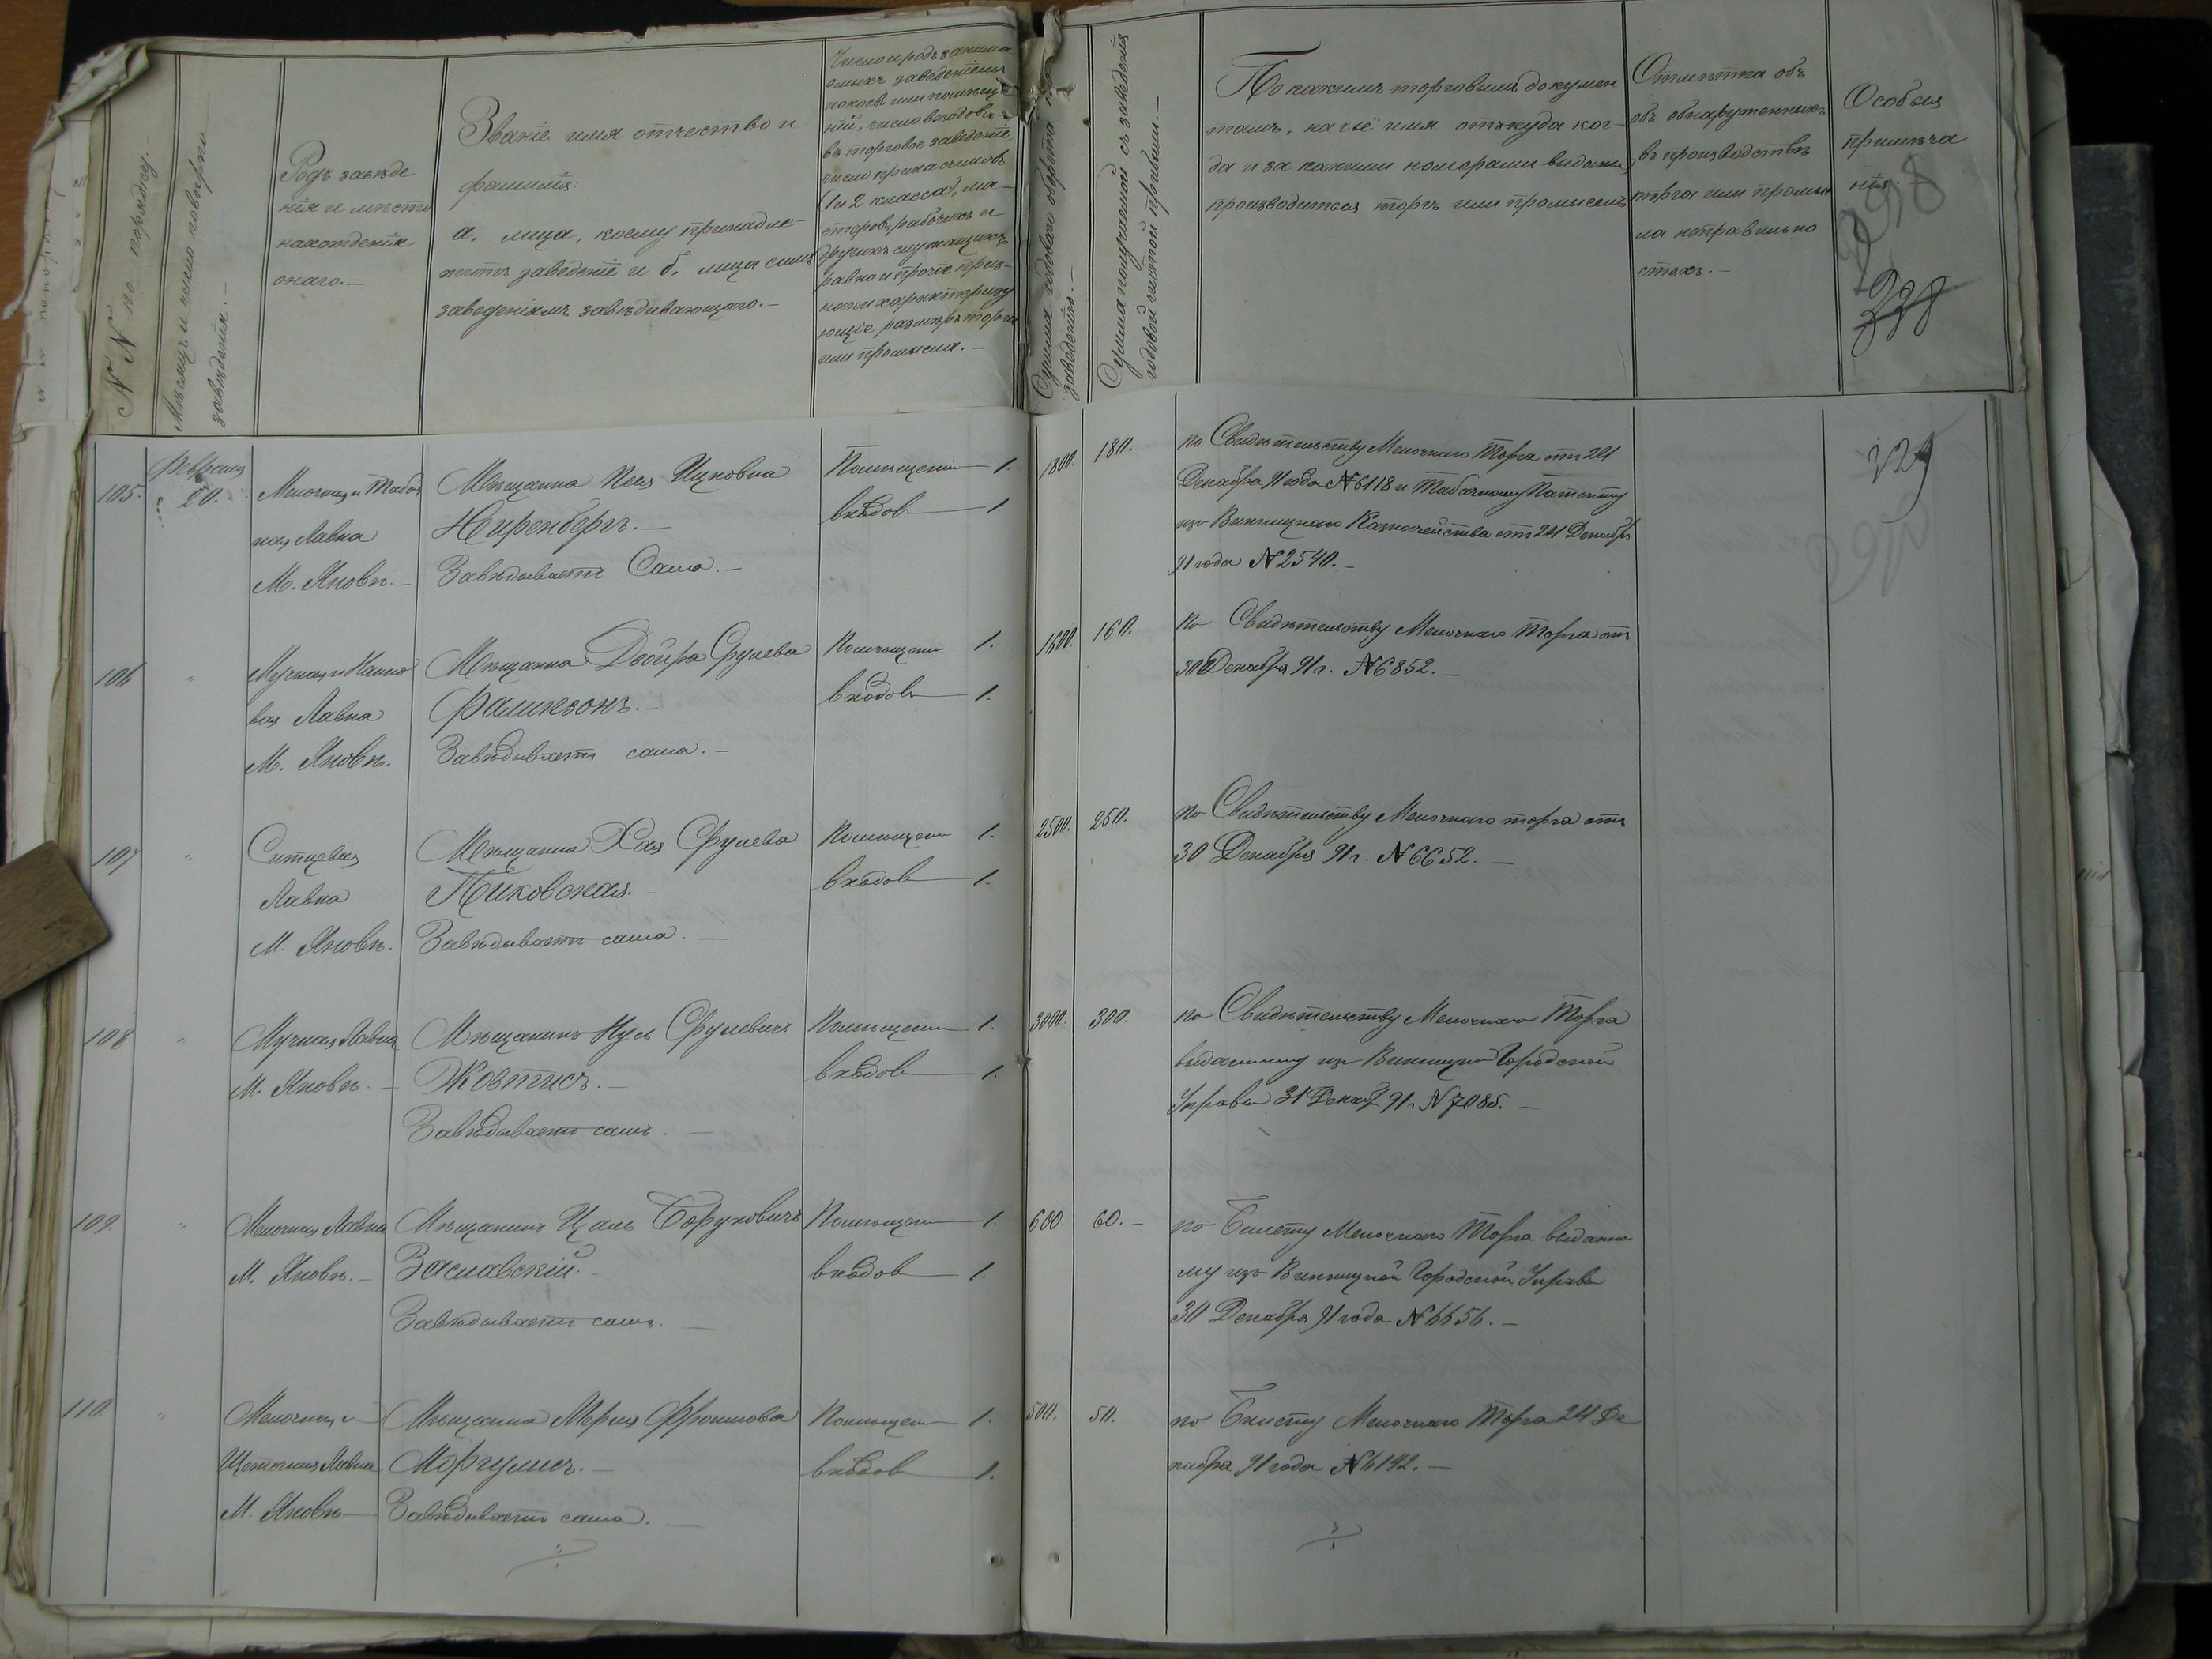 N N по порядку. —
Мѣсяцъ и число повѣрки
завѣденія. —
Родъ завѣде
нія и мѣсто
нахожденія
онаго. —
Званіе имя отчество и
фамилія:
а, лица, коему принадле-
житъ заведеніе и б, лица симъ
заведеніямъ завѣдывающаго. —
Число и родъ занима
емыхъ заведеніемъ
покоевъ или помѣще
ній, число входовъ
въ торговое заведеніе
число прикащиковъ
(1 и 2 класса), ма-
стеровъ, рабочихъ и
другихъ служащихъ
равно и прочіе приз-
наки характеризу
ющіе размѣръ торга
или промысла. —
Сумма годоваго оборота по
заведенію. —
Сумма получаемой съ заведенія
годовой чистой прибыли. —
По какимъ торговымъ докумен
тамъ, на чьё имя откуда ког-
да и за какими номерами выданы
производится торгъ или промыселъ
Отмѣтка объ
объ обнаруженныхъ
въ производствѣ
торга или промыс
ла неправильно
стяхъ. —
Особыя
примѣча
нія.
298
338
329
105.
Февраля
20.
Мелочная и Табач
ная Лавка
М. Яновѣ. —
Мѣщанка Песя Ицковна
Ниренбергъ. —
Завѣдываетъ Сама. —
Помѣщеніи — 1.
входов — 1
1800.
180.
по Свидѣтельству Мелочнаго Торга отъ 24
Декабря 91 года N 6118 и Табачному Патенту
изъ Винницкаго Казначейства отъ 24 Декабря
91 года N 2540. —
106
"
Мучная и
вая Лавка
М. Яновѣ.
Мѣщанка Двойра Срулева
Фалинзонъ. —
Завѣдываетъ сама. —
Помѣщени 1.
входов — 1.
1600.
160.
по Свидѣтельству Мелочнаго Торга отъ
30 Декабря 91 г. N 6852. —
107
"
Ситцевая
Лавка
М. Яновѣ.
Мѣщанка Хая Срулева
Пиковская. —
Завѣдываетъ сама. —
Помѣщени 1.
входов — 1.
2500.
250.
по Свидѣтельству Мелочнаго торга отъ
30 Декабря 91 г. N 6652. —
108
"
Мучная Лавка
М. Яновѣ. —
Мѣщанинъ Нусь Срулевичъ
Жовтисъ. —
Завѣдываетъ самъ. —
Помѣщени — 1.
входов — 1.
3000.
300.
по Свидѣтельству Мелочнаго Торга
выданному изъ Винницкой Городской
Управы 31 Декаб. 91 г. N 7085. —
109.
"
Мелочная Лавка
М. Яновѣ. —
Мѣщанинъ Цаль Боруховичъ
Заславскій. —
Завѣдываетъ самъ. —
Помѣщен — 1.
входов — 1.
600.
60. —
по Билету Мелочнаго Торга выданно
му изъ Винницкой Городской Управы
30 Декабря 91 года N 6656. —
110.
"
Мелочная и
Щеточная Лавка
М. Яновѣ —
Мѣщанка Мерия Фроимова
Моргулисъ. —
Завѣдываетъ сама. —
Помѣщен — 1.
входов — 1.
500.
50.
по Билету Мелочнаго Торга 24 Де
кабря 91 года N 6142. —